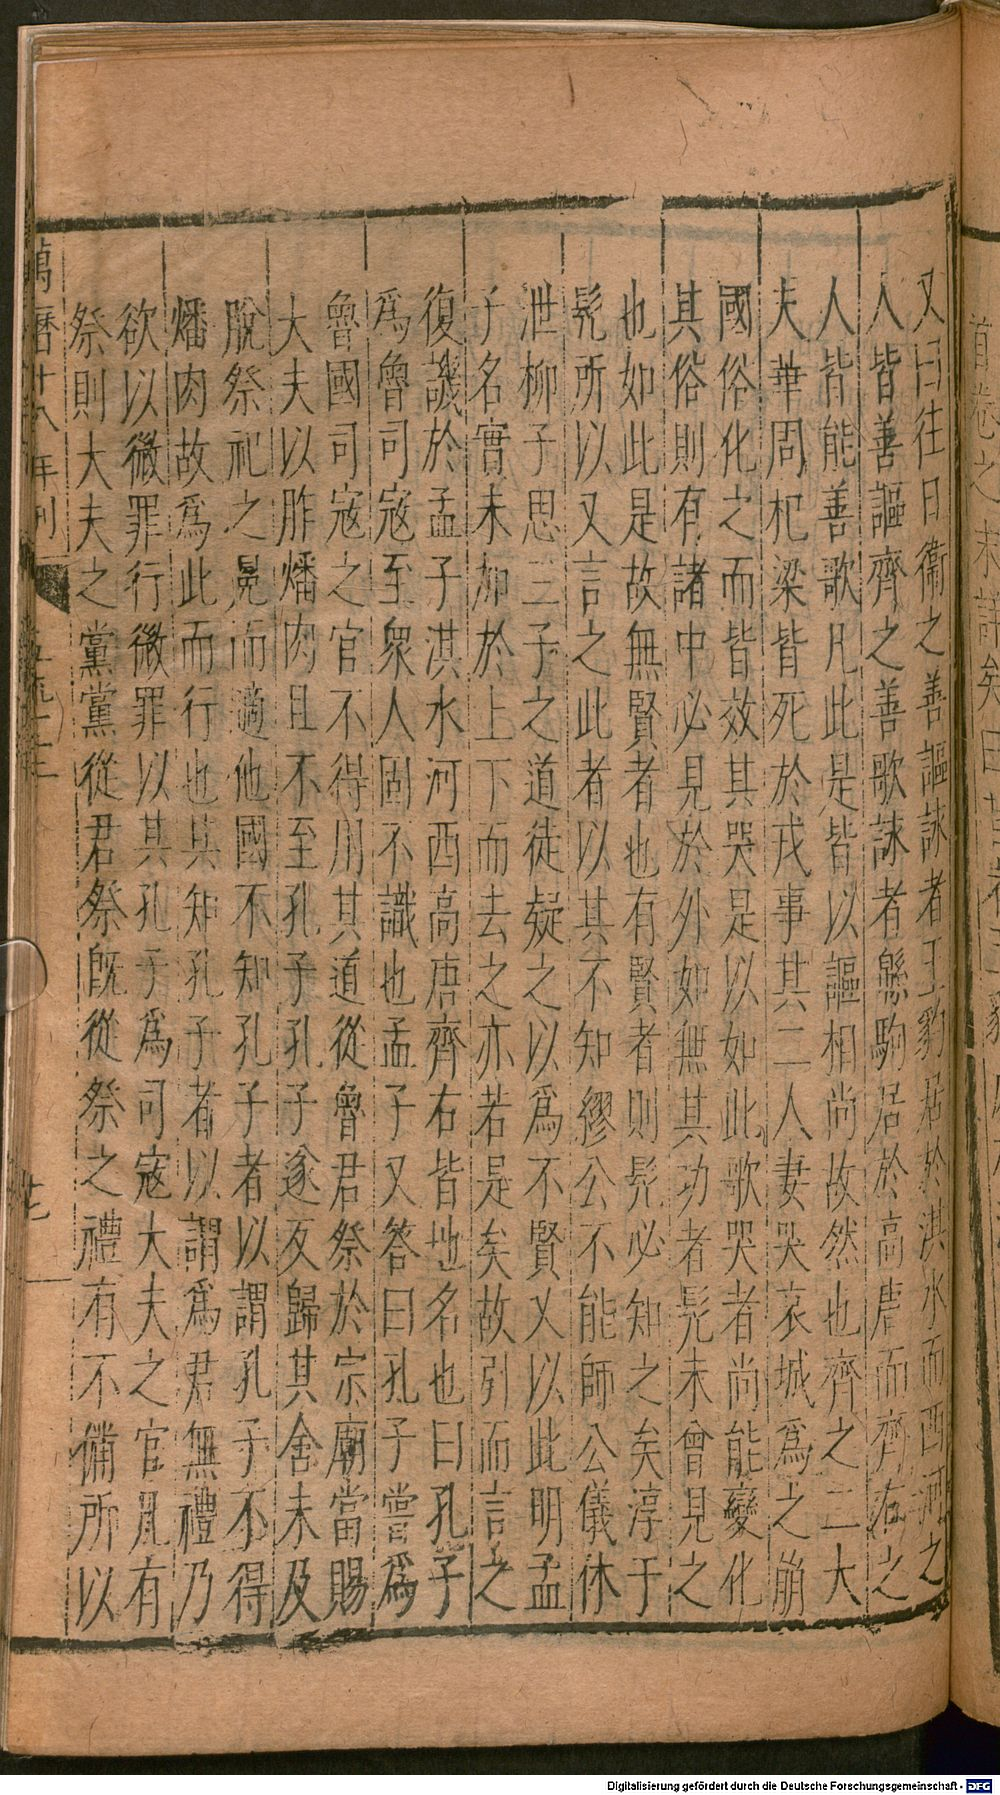 又曰往日衞之善謳詠者王豹居於淇水而西河之
人皆善謳齊之善歌詠者緜駒居於高唐而齊右之
人皆能善歌凡此是皆以謳相尚故然也齊之二大
夫華周杞梁皆死於戎事其二人妻哭哀城爲之崩
國俗化之而皆效其哭是以如此歌哭者尚能變化
其俗則有諸中必見於外如無其功者髠未曾見之
也如此是故無賢者也有賢者則髠必知之矣淳于
髠所以又言之此者以其不知繆公不能師公儀休
泄柳子思三子之道徒疑之以爲不賢又以此明孟
子名實未加於上下而去之亦若是矣故引而言之
復譏於孟子淇水河西高唐齊右皆地名也曰孔子
爲魯司寇至衆人固不識也孟子又答曰孔子嘗爲
魯國司寇之官不得用其道從魯君祭於宗廟當賜
大夫以胙燔肉且不至孔子孔子遂反歸其舍未及
脫祭祀之冕而適他國不知孔子者以謂孔子不得
燔肉故爲此而行也其知孔子者以謂爲君無禮乃
欲以微罪行微罪以其孔子爲司寇大夫之官凡有
祭則大夫之黨黨從君祭既從祭之禮有不備所以
萬曆十八年刊
Digitalisierung gefördert durch die Deutsche Forschungsgemeinschaft - DFG